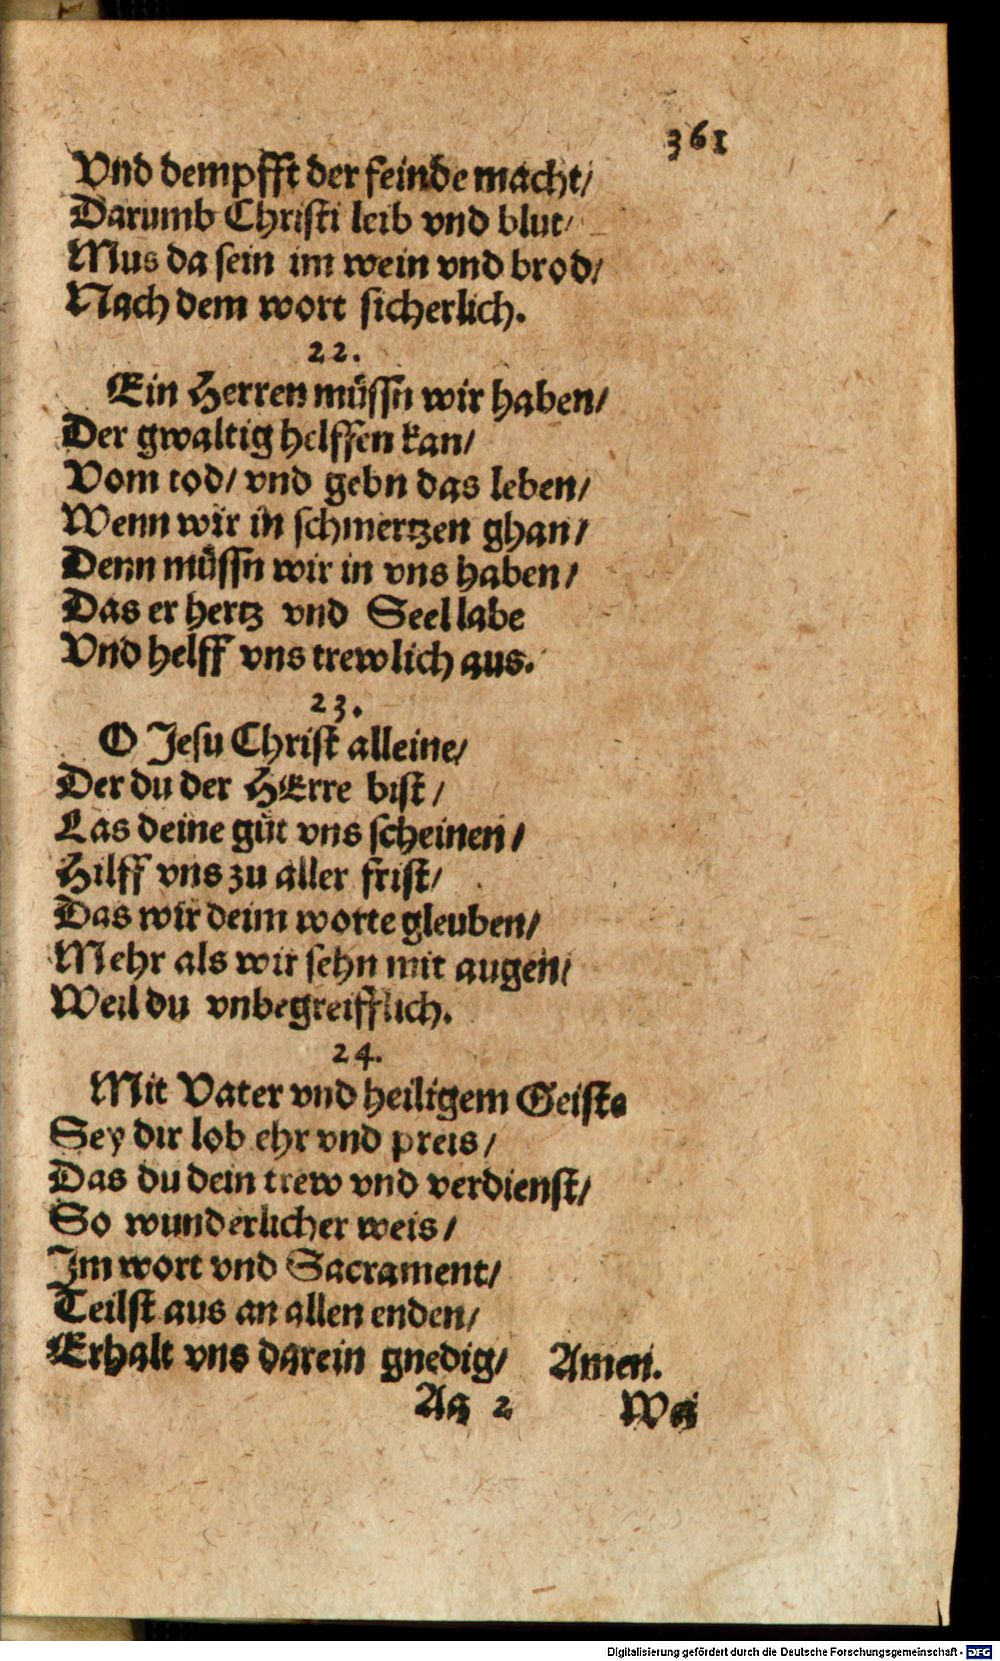 361
Vnd dempfft der feinde macht/
Darumb Christi leib vnd blut/
Mus da sein im wein vnd brod/
Nach dem wort sicherlich.
22.
Ein Herren müssn wir haben/
Der gwaltig helffen kan/
Vom tod/ vnd gebn das leben/
Wenn wir in schmertzen ghan/
Denn müssn wir in vns haben/
Das er hertz vnd Seel labe
Vnd helff vns trewlich aus.
23.
O Jesu Christ alleine/
Der du der HErre bist/
Las deine güt vns scheinen/
Hilff vns zu aller frist/
Das wir deim worte gleuben/
Mehr als wir sehn mit augen/
Weil du vnbegreifflich.
24.
Mit Vater vnd heiligem Geiste
Sey dir lob ehr vnd preis/
Das du dein trew vnd verdienst/
So wunderlicher weis/
Im wort vnd Sacrament/
Teilst aus an allen enden/
Erhalt vns darein gnedig/ Amen.
Aa 2
Digitalisierung gefördert durch die Deutsche Forschungsgemeinschaft - DFG